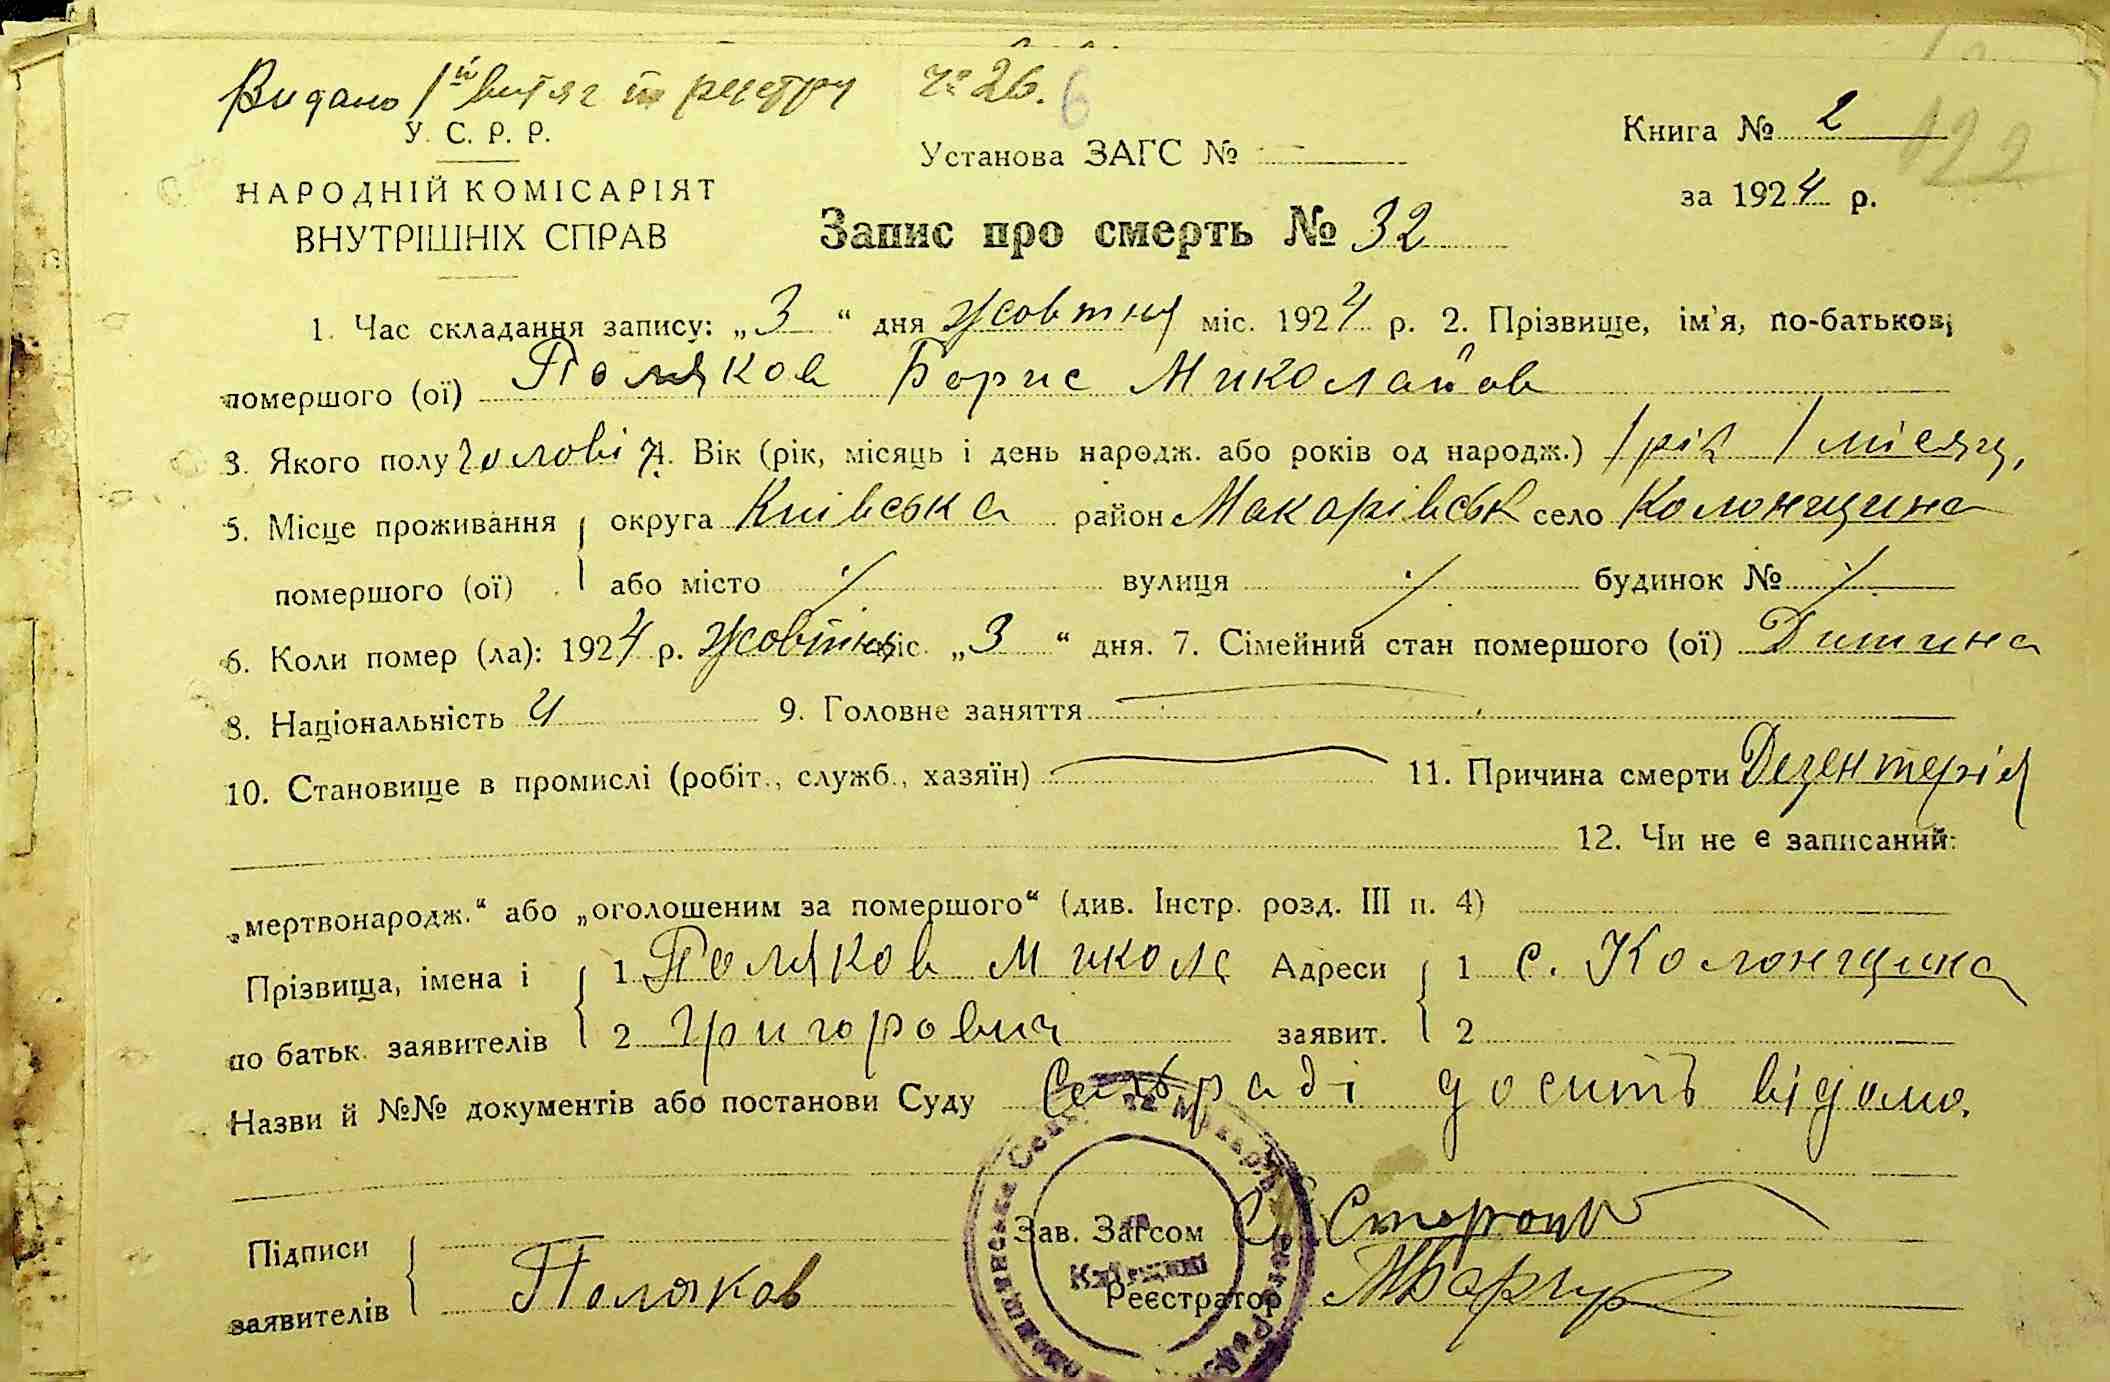 Видано 1й витяг по реєстру
У. С. Р. Р.
НАРОДНІЙ КОМІСАРІЯТ
ВНУТРІШНІХ СПРАВ
Установа ЗАГС №
Книга № 2
122
за 1924 р.
Запис про смерть № 32
1. Час складання запису: „3“ дня Жовтня міс. 1924 р. 2. Прізвище, ім'я, по-батькові
помершого (ої) Поляков Борис Миколайов
3. Якого полу чолові 4. Вік (рік, місяць і день народж. або років од народж.) 1 рік 1 місяц,
5. Місце проживання округа Київська район Макарівськ село Колонщина
помершого (ої) або місто ./. вулиця ./. будинок № ./.
6. Коли помер (ла): 1924 р. Жовтня міс. „3“ дня. 7. Сімейний стан помершого (ої) Дитина
8. Національність У 9. Головне заняття
10. Становище в промислі (робіт., служб., хазяїн) 11. Причина смерти Дезентерія
12. Чи не є записаний:
„мертвонародж.“ або „оголошеним за помершого“ (див. Інстр. розд. III п. 4)
Прізвища, імена і 1 Поляков Микола Адреси 1 с. Колонщина
по батьк. заявителів 2 Григорович заявит. 2
Назви й №№ документів або постанови Суду Сельраді досить відомо.
Зав. Загсом
Підписи
заявителів Поляков Реєстратор